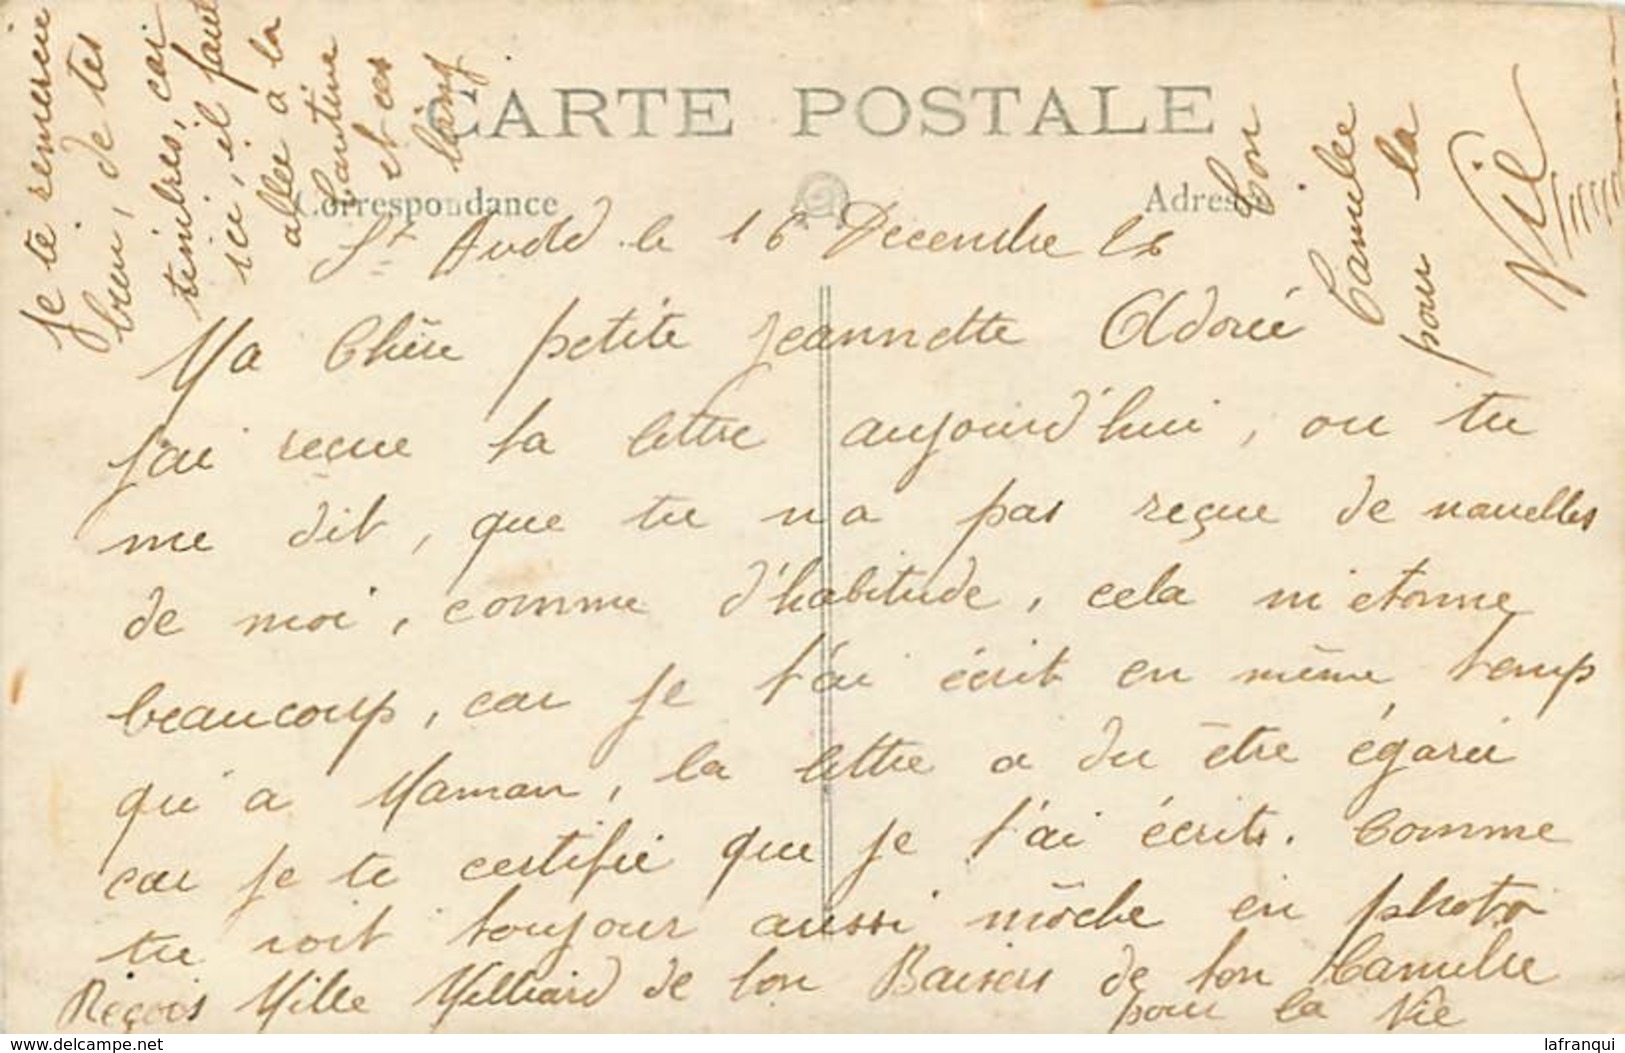 CARTE POSTALE
Correspondance
Adresse
St Avold le 16 Decembre 26
Ma Chère petite Jeannette Adorée
J'ai reçue ta lettre aujourd'hui, ou tu
me dit, que tu n'a pas reçue de nouvelles
de moi, comme d'habitude, cela m'etonne
beaucoup, car je t'ai écrit en même temp
qu'a Maman, la lettre a du être égarée
car je te certifie que je t'ai écrits. Comme
tu voit toujour aussi môche en photo
Reçois Mille Milliard de bon Baisers de ton Camille
pour la Vie
Je te remercie
bien, de tes
timbres, car
ici, il faut
allée a la
Cantine
et ces
long
Ton
Camille
pour la
Vie
lafranqui
www.delcampe.net